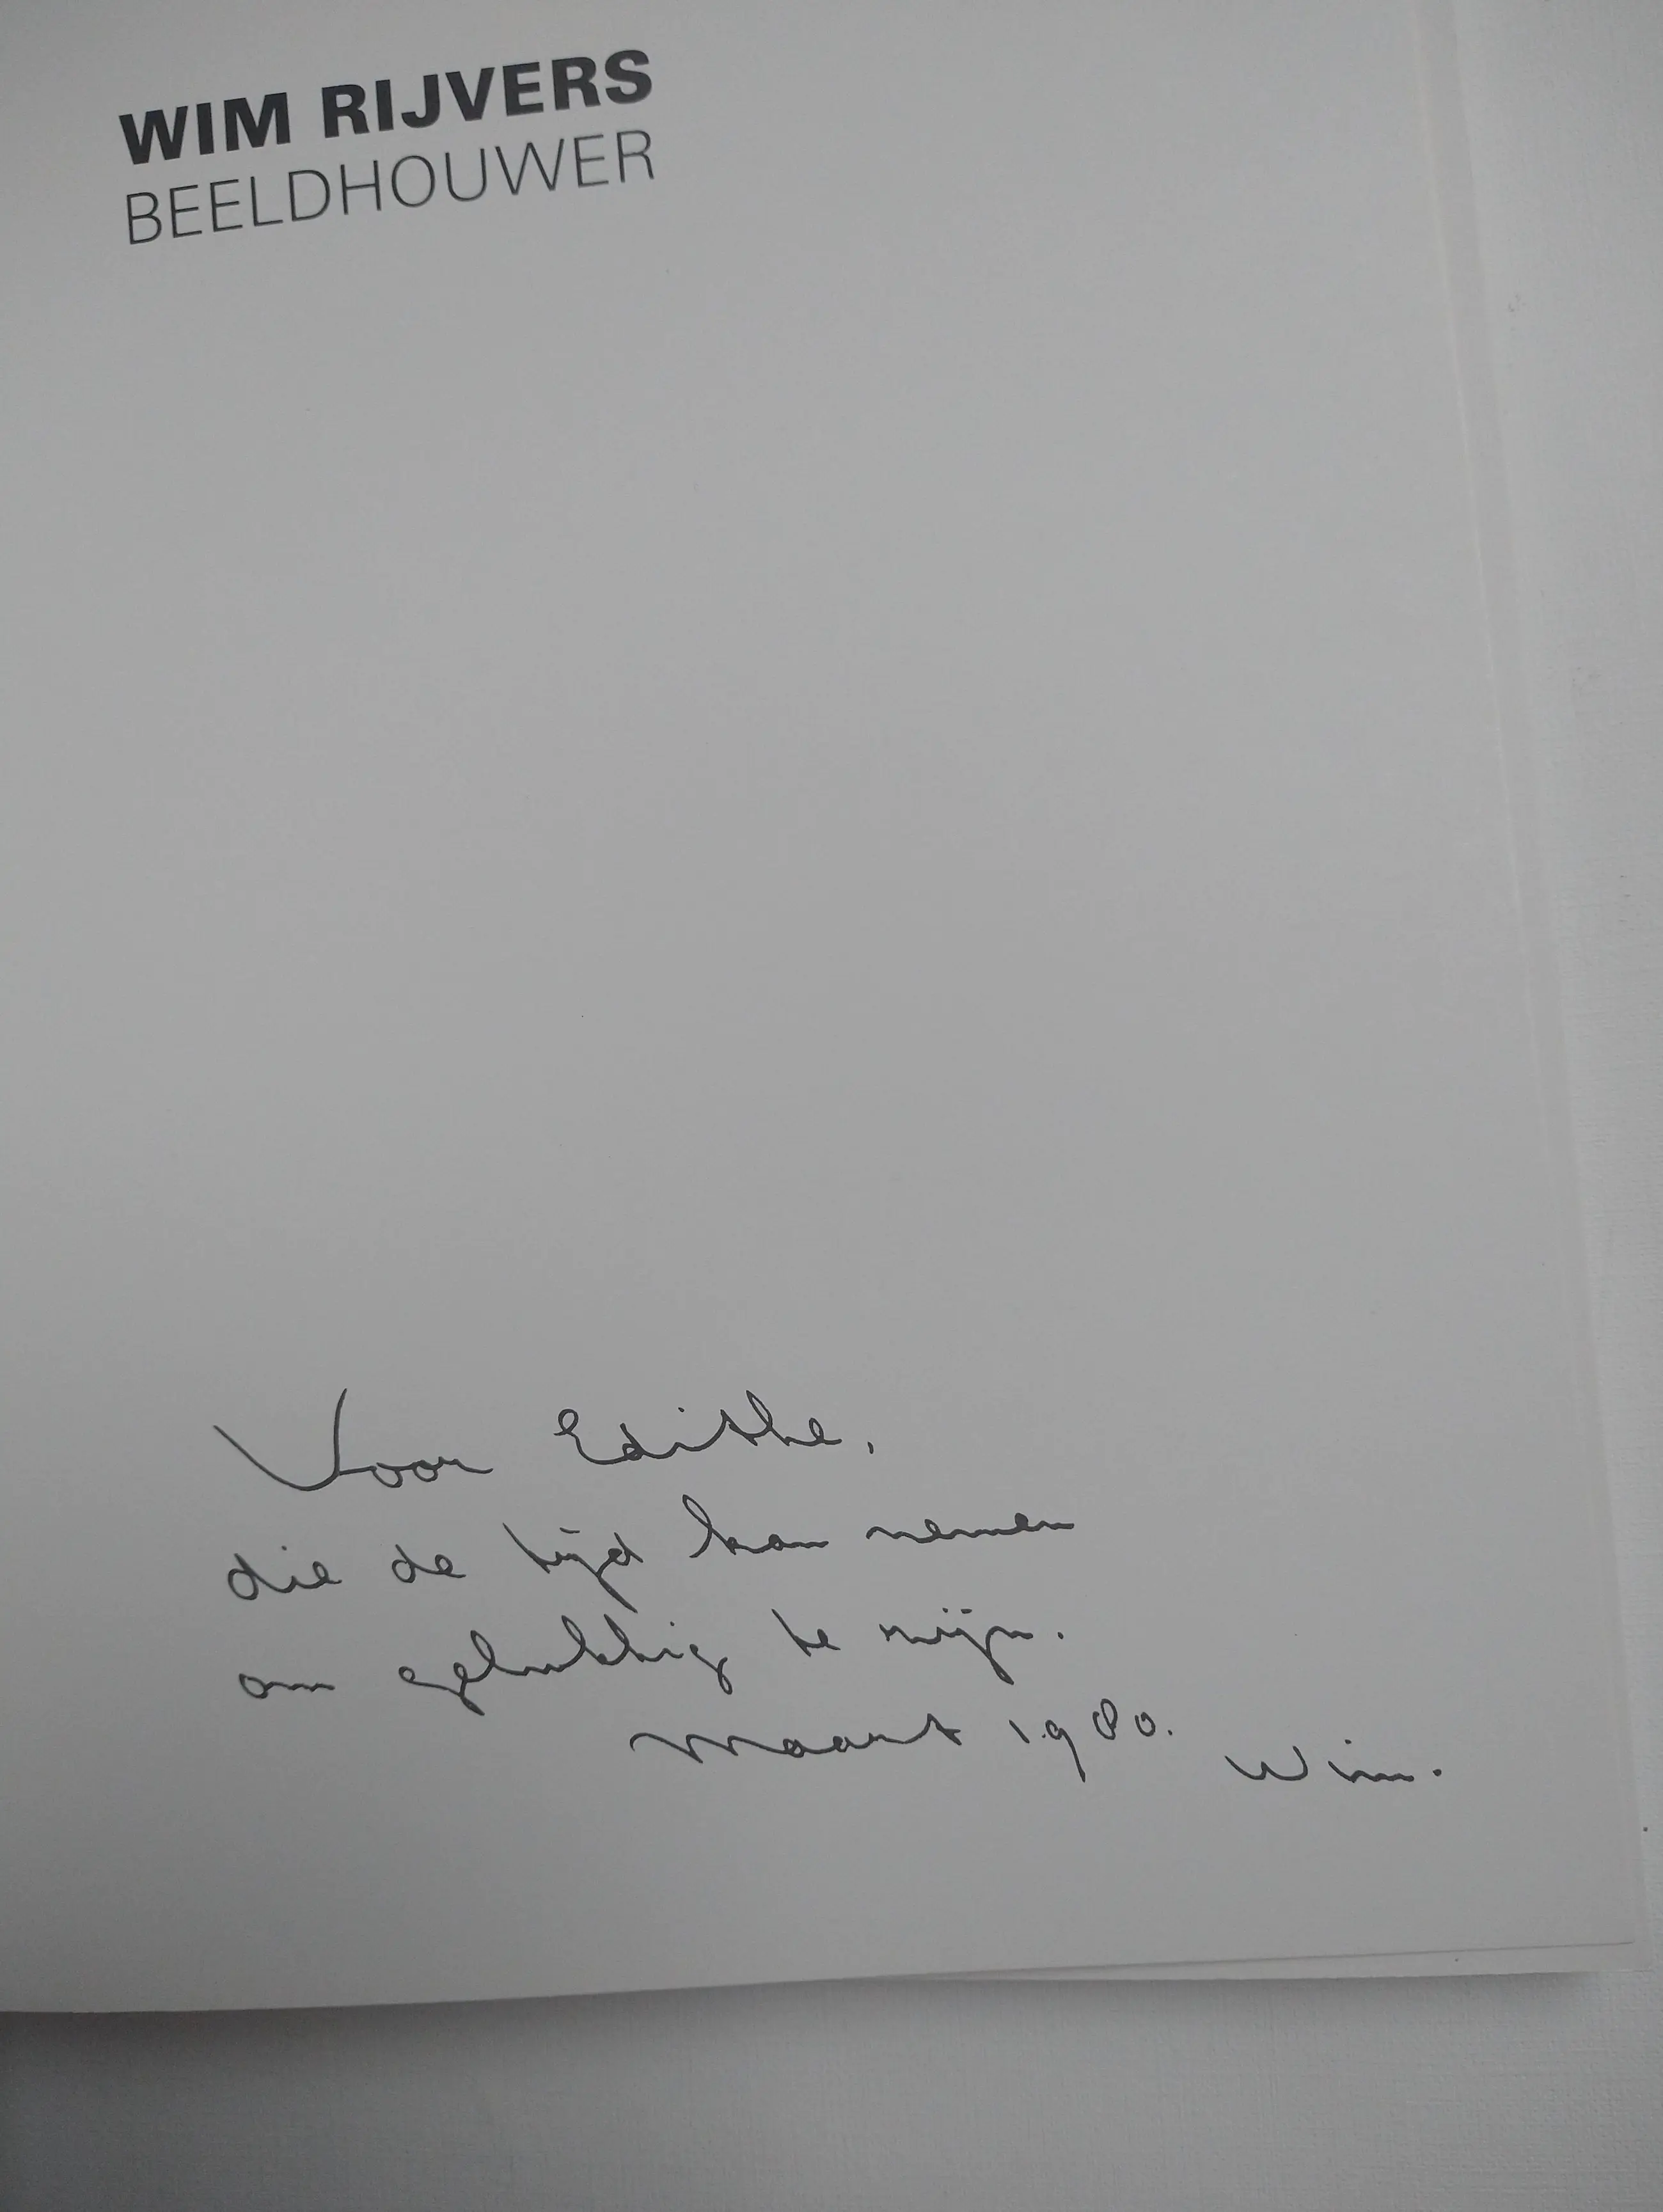 WIM RIJVERS
BEELDHOUWER
Voor Edithe,
die de tijd kan nemen
om gelukkig te zijn.
Maart 1980.
Wim.